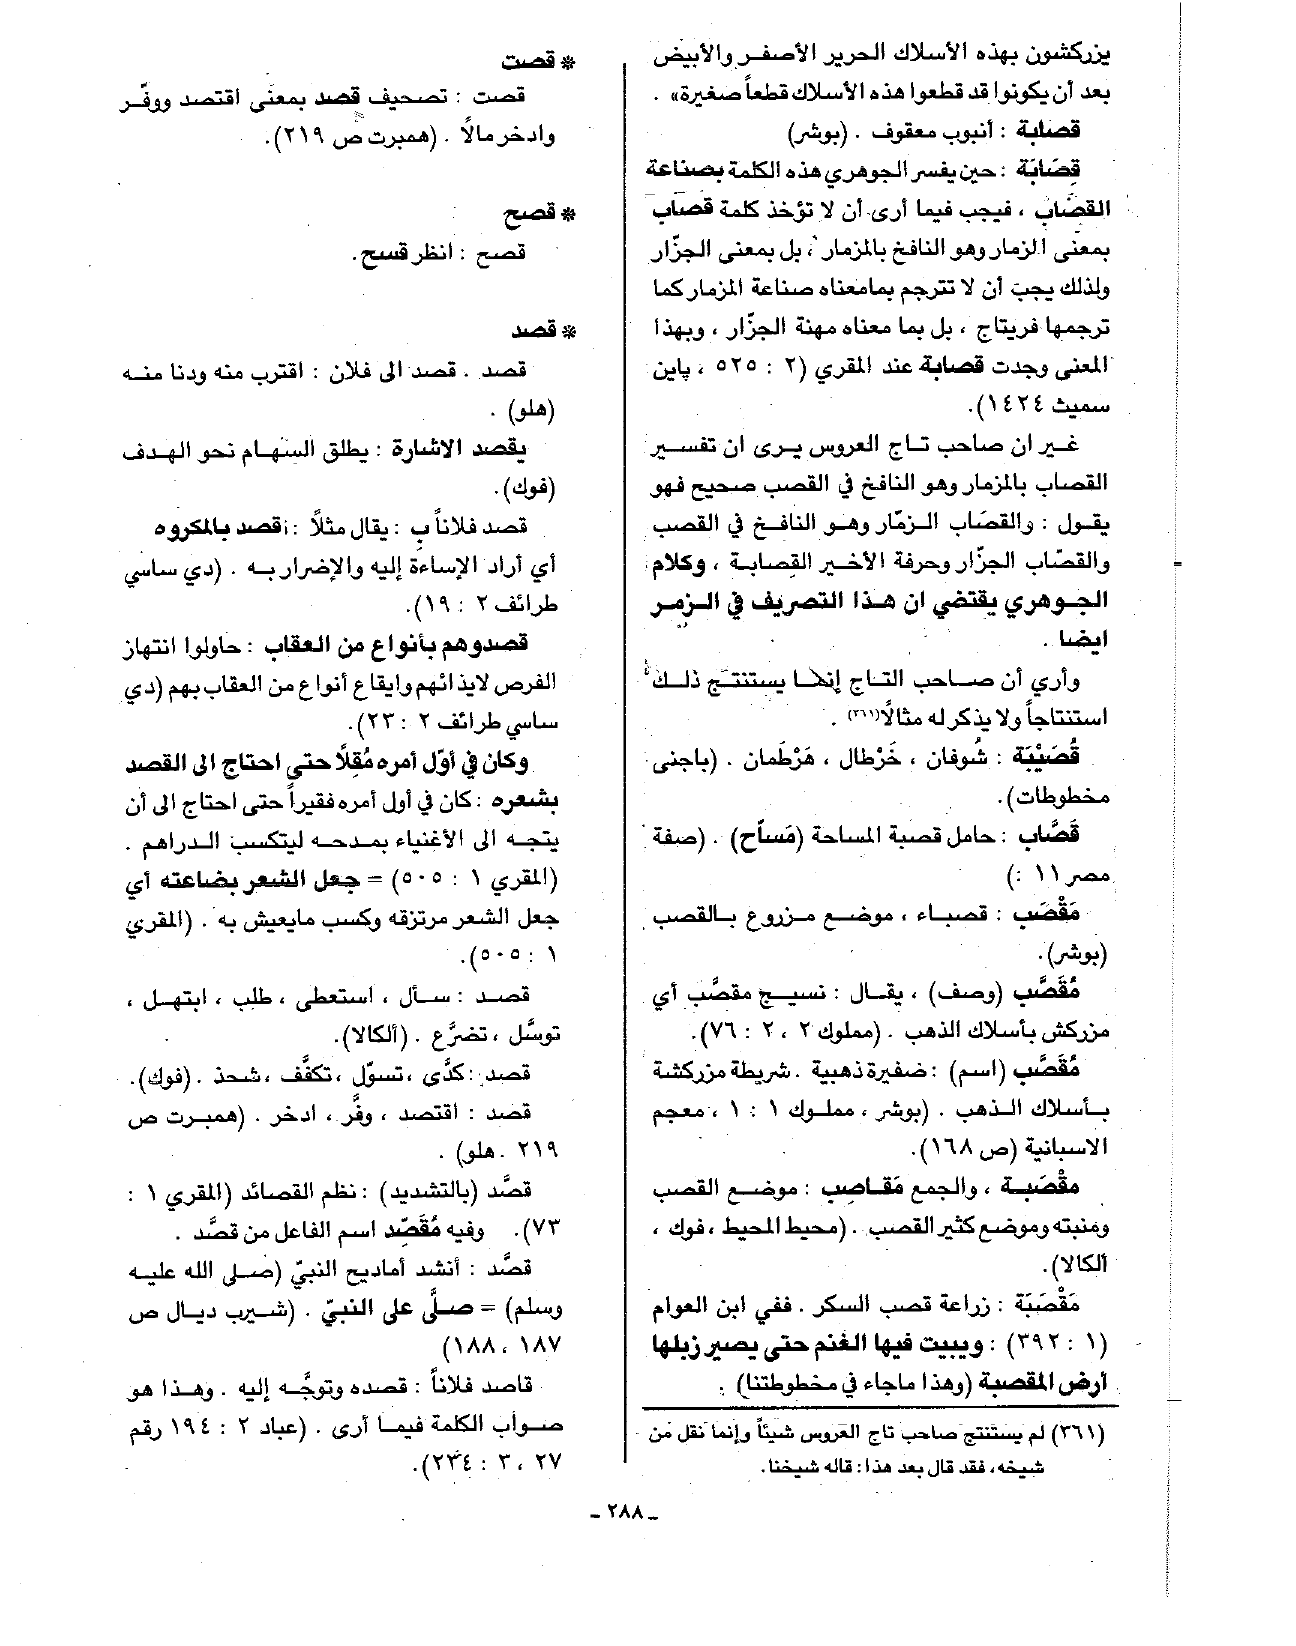 يزركشون بهذه الأسلاك الحرير الأصفر والأبيض
بعد أن يكونوا قد قطعوا هذه الأسلاك قطعاً صغيرة» .
قصابة : أنبوب معقوف . (بوشر)
قِصَابَة : حين يفسر الجوهري هذه الكلمة بصناعة
القصّاب ، فيجب فيما أرى أن لا تؤخذ كلمة قصاب
بمعنى الزمار وهو النافخ بالمزمار ، بل بمعنى الجزّار
ولذلك يجب أن لا تترجم بما معناه صناعة المزمار كما
ترجمها فريتاج ، بل بما معناه مهنة الجزّار ، وبهذا
المعنى وجدت قصابة عند المقري (٢ : ٥٢٥ ، پاين
سميث ١٤٢٤).
غير ان صاحب تاج العروس يرى ان تفسير
القصاب بالمزمار وهو النافخ في القصب صحيح فهو
يقول : والقصّاب الزمّار وهو النافخ في القصب
والقصّاب الجزّار وحرفة الأخير القصابة ، وكلام
الجوهري يقتضي ان هذا التصريف في الزمر
ايضا .
وأرى أن صاحب التاج إنما يستنتج ذلك
استنتاجاً ولا يذكر له مثالاً(٣٦١) .
قُصَيْبَة : شُوفان ، خَرْطال ، هَرْطمان . (باجنى
مخطوطات).
قَصَّاب : حامل قصبة المساحة (مَسّاح) . (صفة
مصر ١١ :)
مَقْصَب : قصباء ، موضع مزروع بالقصب
(بوشر).
مُقَصَّب (وصف) ، يقال : نسيج مقصّب أي
مزركش بأسلاك الذهب . (مملوك ٢ ، ٢ : ٧٦).
مُقَصَّب (اسم) : ضفيرة ذهبية . شريطة مزركشة
بأسلاك الذهب . (بوشر ، مملوك ١ : ١ ، معجم
الاسبانية (ص ١٦٨).
مقْصَبة ، والجمع مَقَاصِب : موضع القصب
ومنبته وموضع كثير القصب . (محيط المحيط ، فوك ،
ألكالا).
مَقْصَبَة : زراعة قصب السكر . ففي ابن العوام
(١ : ٣٩٢) : ويبيت فيها الغنم حتى يصير زبلها
أرض المقصبة (وهذا ماجاء في مخطوطتنا) .
(٣٦١) لم يستنتج صاحب تاج العروس شيئاً وإنما نقل من
شيخه، فقد قال بعد هذا : قاله شيخنا.
* قصت
قصت : تصحيف قصد بمعنى اقتصد ووفّر
وادخر مالاً . (همبرت ص ٢١٩).
* قصح
قصح : انظر قسح.
* قصد
قصد . قصد الى فلان : اقترب منه ودنا منه
(هلو) .
يقصد الاشارة : يطلق السهام نحو الهدف
(فوك).
قصد فلاناً ب : يقال مثلاً : قصد بالمكروه
أي أراد الإساءة إليه والإضرار به . (دي ساسي
طرائف ٢ : ١٩).
قصدوهم بأنواع من العقاب : حاولوا انتهاز
الفرص لايذائهم وايقاع أنواع من العقاب بهم (دي
ساسي طرائف ٢ : ٢٣).
وكان في أوّل أمره مُقلاً حتى احتاج الى القصد
بشعره : كان في أول أمره فقيراً حتى احتاج الى أن
يتجه الى الأغنياء بمدحه ليتكسب الدراهم .
(المقري ١ : ٥٠٥) = جعل الشعر بضاعته أي
جعل الشعر مرتزقه وكسب مايعيش به . (المقري
١ : ٥٠٥).
قصد : سأل ، استعطى ، طلب ، ابتهل ،
توسَّل ، تضرَّع . (ألكالا).
قصد : كدَّى ، تسوّل ، تكفَّف ، شحذ . (فوك).
قصد : اقتصد ، وفَّر ، ادخر . (همبرت ص
٢١٩ . هلو) .
قصَّد (بالتشديد) : نظم القصائد (المقري ١ :
٧٣). وفيه مُقَصّد اسم الفاعل من قصَّد .
قصَّد : أنشد أماديح النبيّ (صلى الله عليه
وسلم) = صلَّى على النبيّ . (شيرب ديال ص
١٨٧ ، ١٨٨)
قاصد فلاناً : قصده وتوجَّه إليه . وهذا هو
صواب الكلمة فيما أرى . (عباد ٢ : ١٩٤ رقم
٢٧ ، ٣ : ٢٣٤).
ـ ٢٨٨ ـ